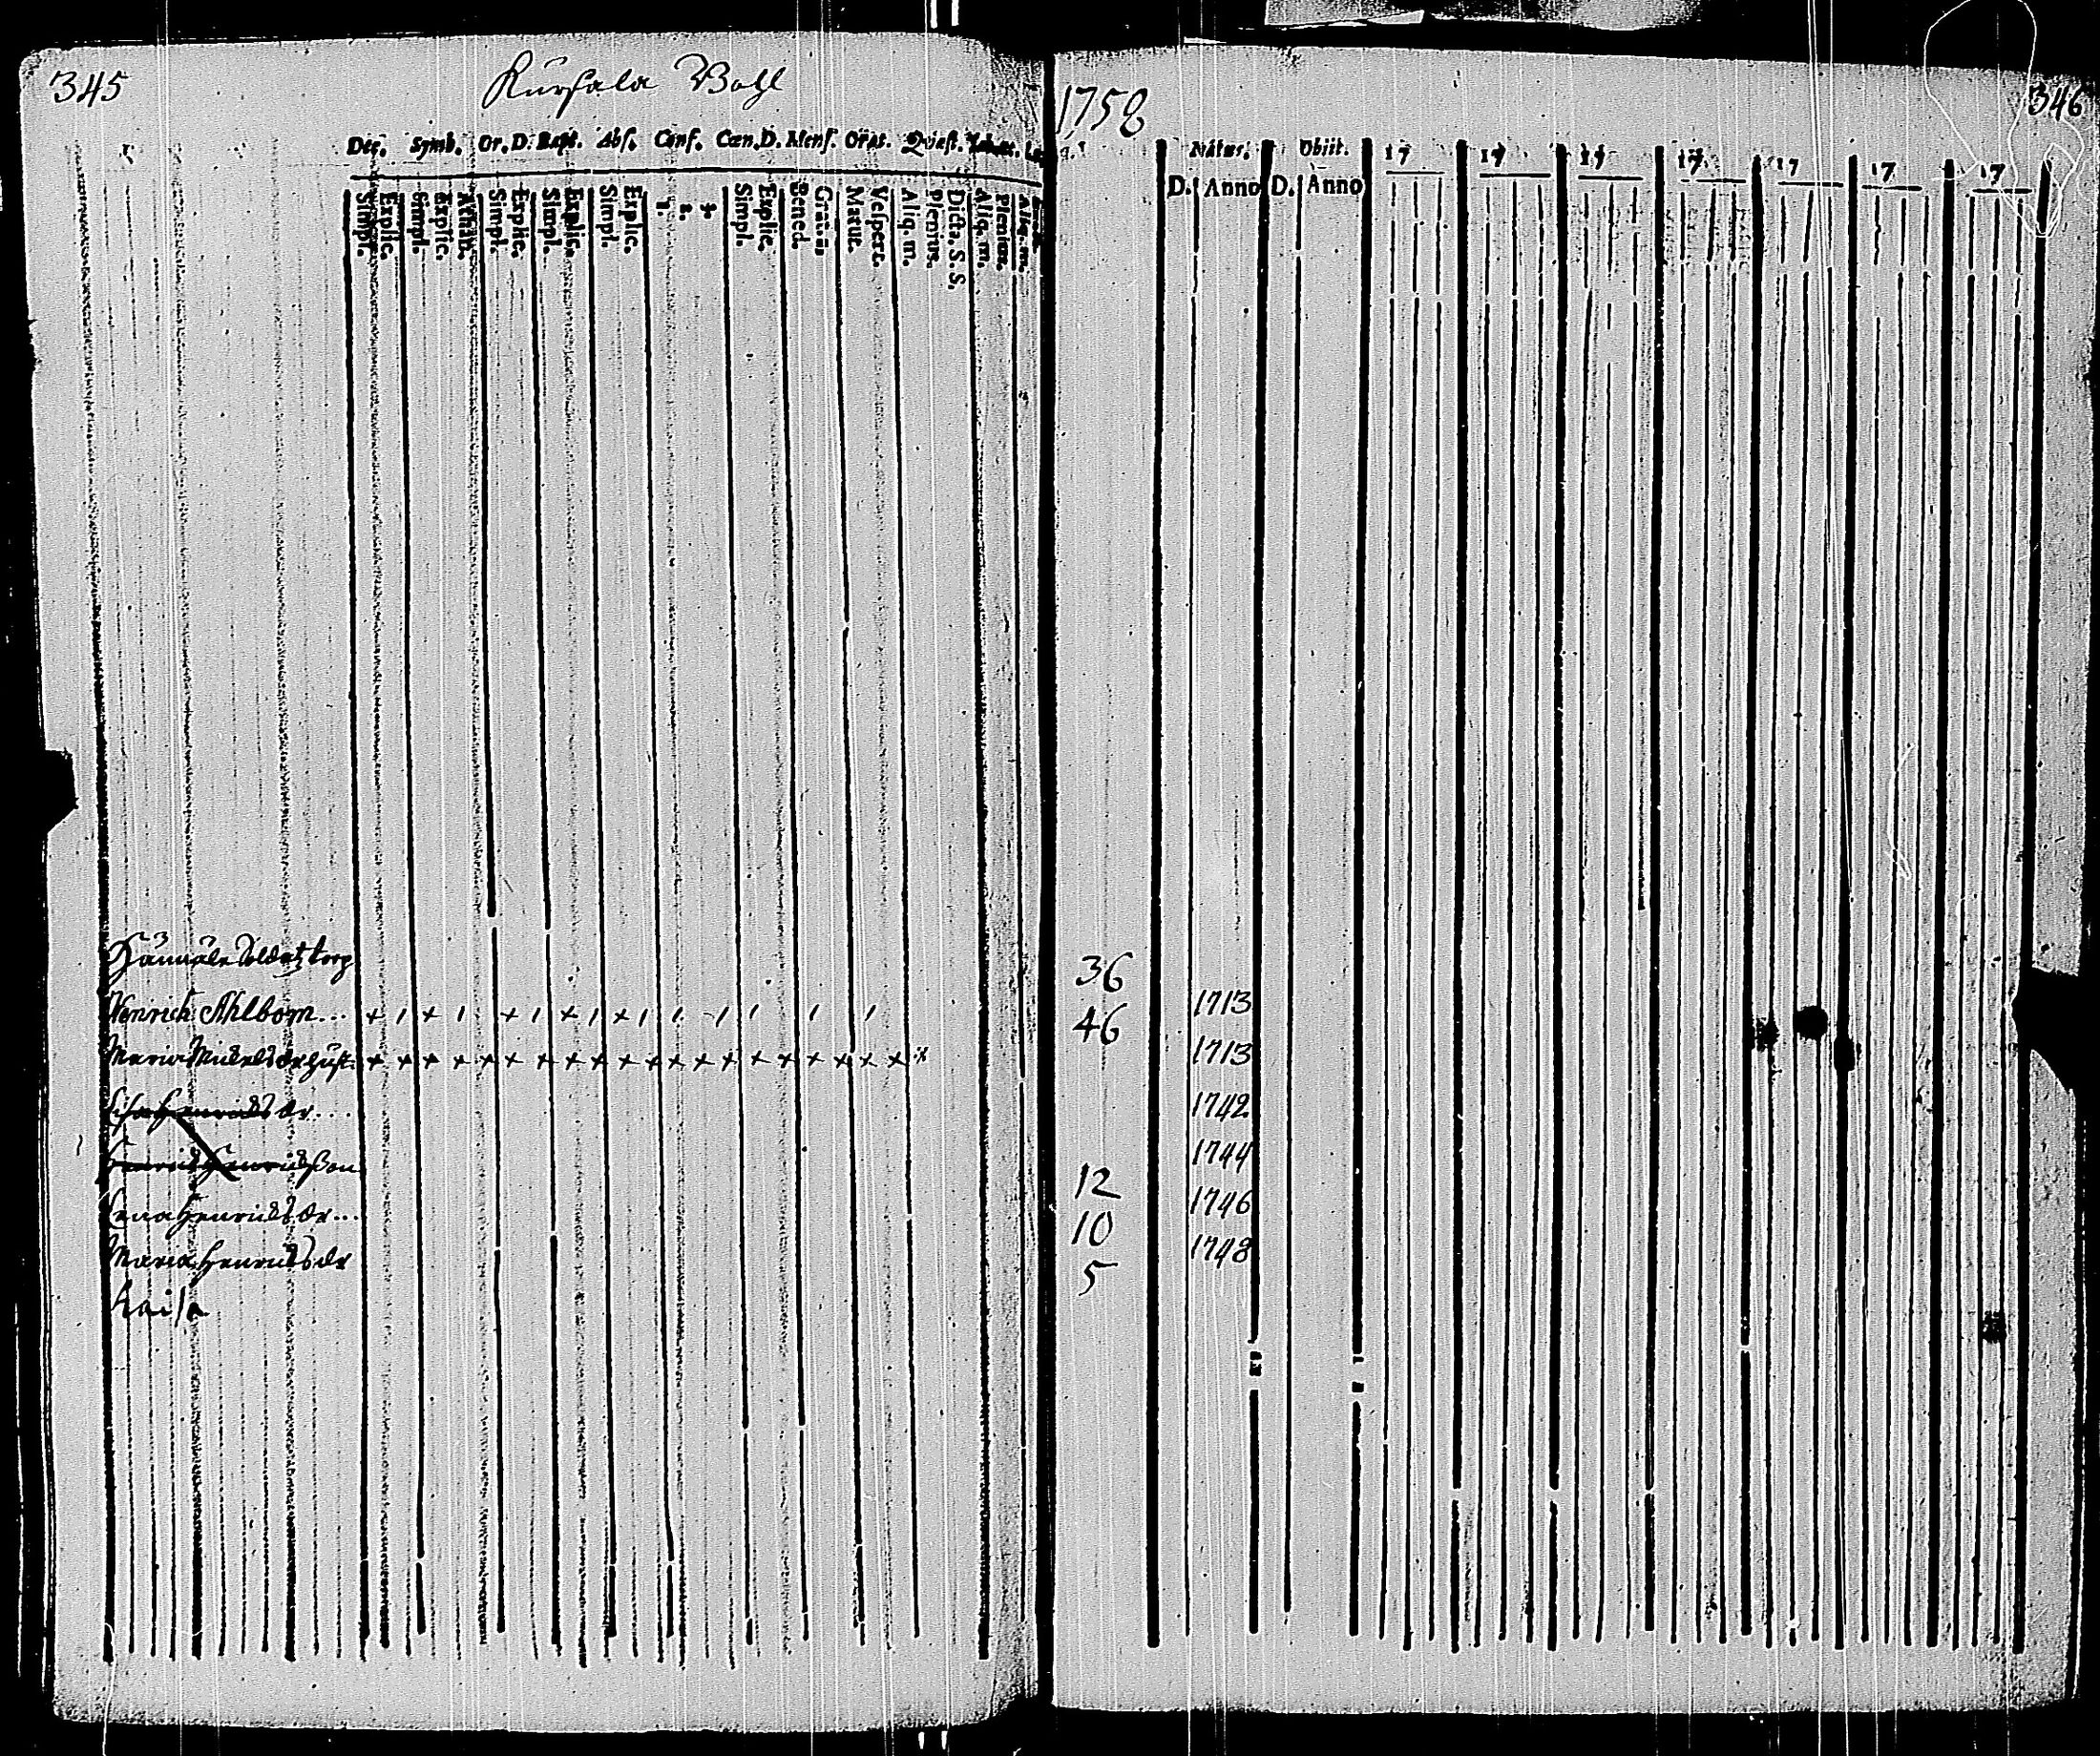 345 Kursala Bohl
Dec. Symb. Or. D. Bapt. Abs. Conf. Cœn. D. Mens. Orat. Quæst.
Simpl. Explic. Simpl. Explic. Athan. Simpl. Explic. Simpl. Explic. Simpl. Explic. 1. 2. 3. Simpl. Explic. Bened. Gratias Matut. Vespert. Aliq. m. Plenius. Dicta. S. S. Aliq. m. Plenius. Aliq. m.
Soldat torp
Henrich Ahlbom... x 1 x 1 x 1 x 1 x 1 1 1 1 1 1
Maria Michelsdr hust. x x x x x x x x x x x x x x x x x x x x
Henrichsdr...
Henrich Henrichsson
Lena Henrichsdr...
Maria Henrichsdr
Kaisa
1758 346
Natus. Obiit. 17 17 17 17 17 17 17
D. Anno D. Anno
36 1713
46 1713
1742
1744
12 1746
10 1748
5